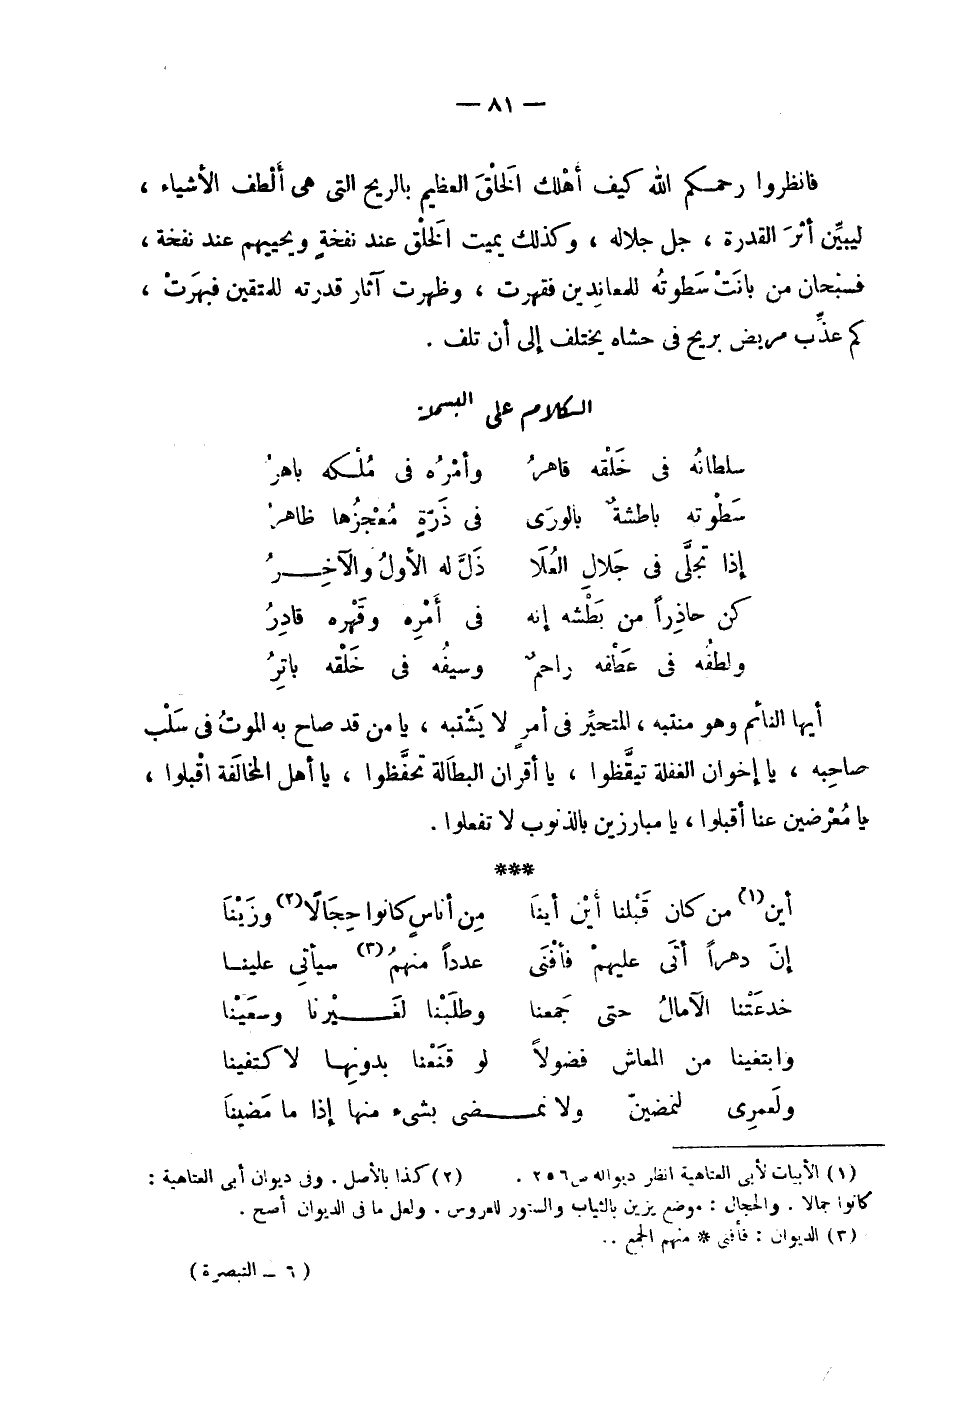 — ٨١ —
فانظروا رحمكم الله كيف أهْلك الخلْقَ العظيم بالريح التى هى ألْطف الأشياء ،
ليبيِّن أثرَ القدرة ، جل جلاله ، وكذلك يميت الخلْق عند نفخةٍ ويحييهم عند نفخة ،
فسبْحان من بانَتْ سَطوتُه للمعاندِين فقهرت ، وظهرت آثار قدرته للمتقين فبهَرتْ ،
كم عذِّب مريض بريح فى حشاه يختلف إلى أن تلف .
الكلام على البسملة
سلطانُه فى خَلْقه قاهرُ وأمْرُه فى مُلْكه باهرُ
سَطْوته باطشةٌ بالورَى فى ذَرّةٍ مُعْجزُها ظاهرُ
إذا تجلَّى فى جَلالِ العُلَا ذَلَّ له الأولُ والآخِرُ
كن حاذِراً من بَطْشه إنه فى أَمْرِه وقَهْره قادِرُ
ولطفُه فى عَطْفه راحمٌ وسيفُه فى خَلْقه باتِرُ
أيها النائم وهو منتبه ، المتحيِّر فى أمرٍ لا يَشْتبه ، يا من قد صاح به الموتُ فى سَلْب
صاحِبه ، يا إخوان الغفلة تيقَّظوا ، يا أقران البطالة تحفَّظوا ، يا أهل المخالَفة اقْبلوا ،
يا مُعْرضين عنا أقبلوا ، يا مبارزين بالذنوب لا تفعلوا .
***
أين(١) من كان قَبْلنا أيْن أينَا مِن أناسٍ كانوا حِجَالًا(٢) وزَيْنَا
إنَ دهراً أتَى عليهمْ فأفْنَى عدداً منهمُ(٣) سيأتِي علينا
خدعَتْنا الآمالُ حتى جَمعنا وطلَبْنا لغَيْرنا وسعَيْنا
وابتغينا من المعاش فضولاً لو قنَعْنا بدونِها لاكتفينا
ولَعمرِى لنمضينّ ولا نمضى بشىء منها إذا ما مَضينَا
(١) الأبيات لأبى العتاهية انظر ديوانه ص ٢٥٦ . (٢) كذا بالأصل . وفى ديوان أبى العتاهية :
كانوا جمالا . والحجال : موضع يزين بالثياب والستور للعروس . ولعل ما فى الديوان أصح .
(٣) الديوان : فأفنى * منهم الجمع ..
( ٦ – التبصرة )